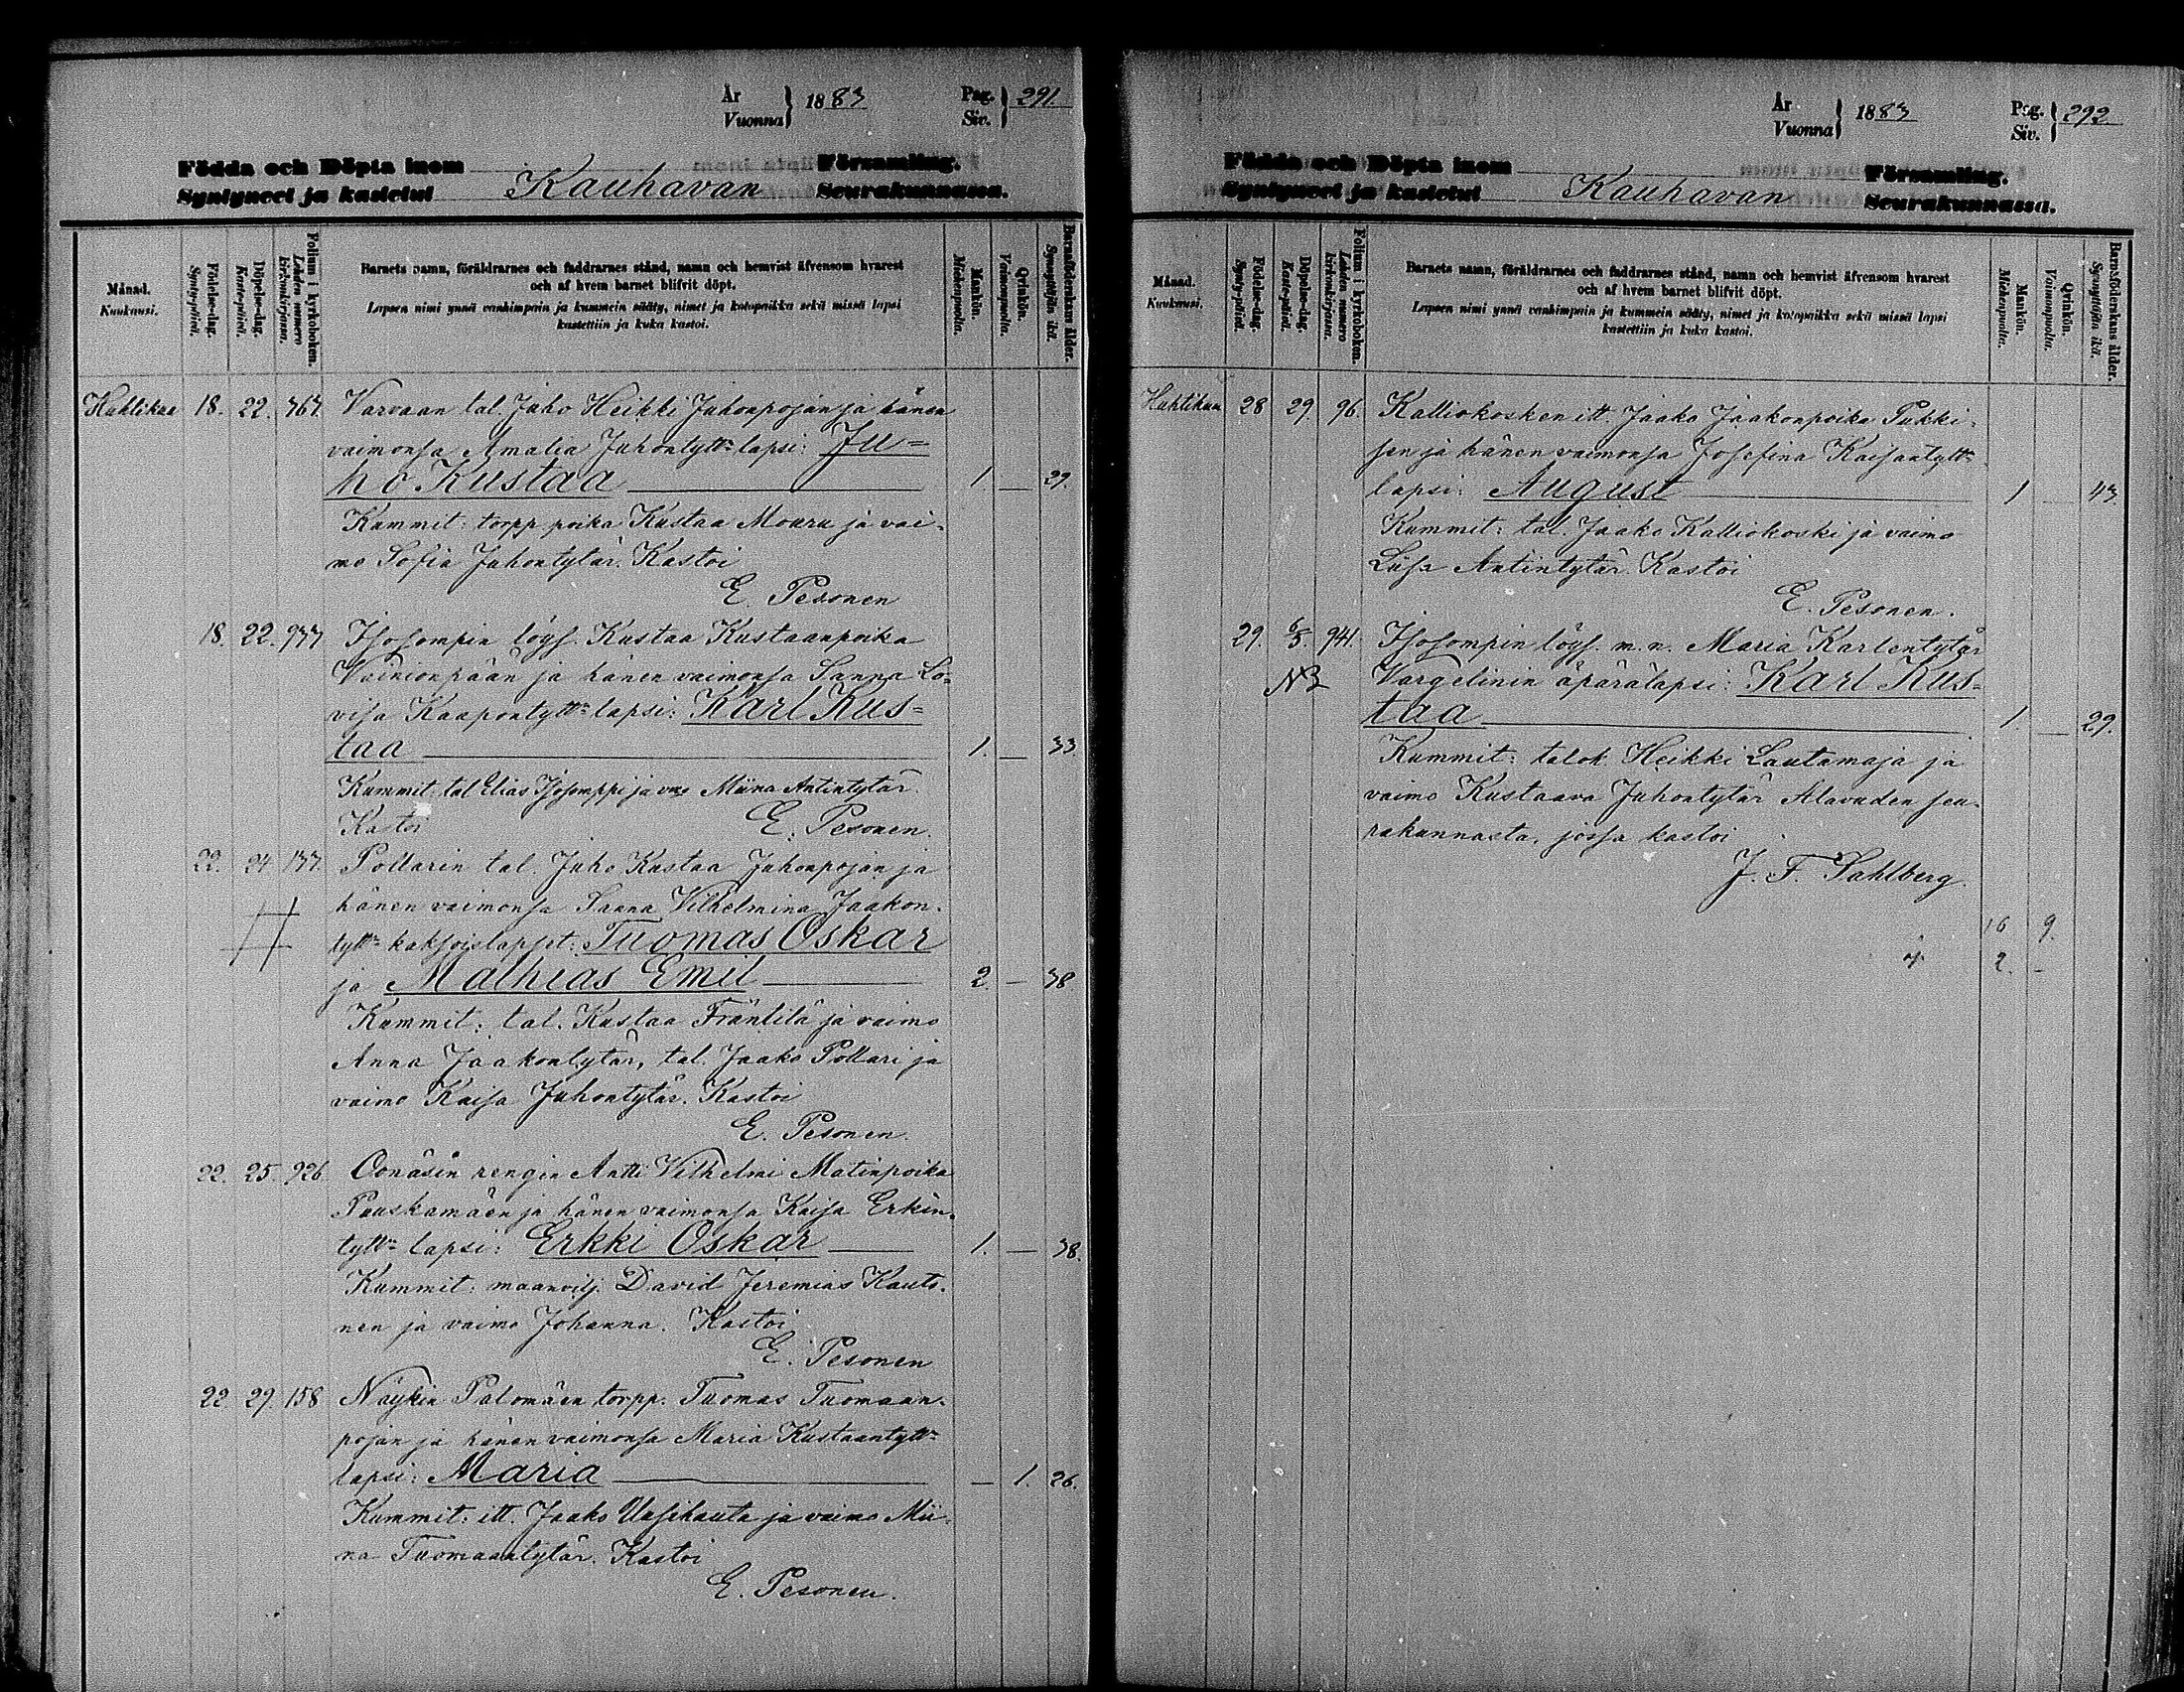 År
Vuonna } 1883
Pag.
Siv. } 291.
Födda och Döpta inom Församling.
Syntyneet ja kastetut Kauhavan Seurakunnassa.
Månad.
Kuukausi.
Födelse-dag.
Synty-päivä.
Döpelse-dag.
Kaste-päivä.
Folium i kyrkoboken.
Lehden numero kirkonkirjassa.
Barnets namn, föräldrarnes och faddrarnes stånd, namn och hemvist äfvensom hvarest
och af hvem barnet blifvit döpt.
Lapsen nimi ynnä vanhimpain ja kummein sääty, nimet ja kotopaikka sekä missä lapsi
kastettiin ja kuka kastoi.
Mankön.
Miehenpuolta.
Qvinkön.
Vaimonpuolta.
Barnaföderskans ålder.
Synnyttäjän ikä.
Huhtikuu 18. 22. 367. Varvaan tal. Juho Heikki Juhonpojan ja hänen
vaimonsa Amalia Juhontyttn lapsi: Ju=
ho Kustaa 1. — 29.
Kummit: torpp. poika Kustaa Mouru ja vai-
mo Sofia Juhontytär. Kastoi
E. Pesonen
18. 22. 937 Isosompin löys. Kustaa Kustaanpoika
Vainionpään ja hänen vaimonsa Sanna Lo-
visa Kaapontyttn lapsi: Karl Kus=
taa 1. — 33.
Kummit: tal Elias Isosomppi ja vmo Miina Antintytär.
Kastoi E. Pesonen.
22. 24 133. Pollarin tal. Juho Kustaa Juhonpojan ja
hänen vaimonsa Sanna Vilhelmina Jaakon-
tyttn kaksoislapset: Tuomas Oskar
ja Mathias Emil 2. — 38
Kummit: tal. Kustaa Fräntilä ja vaimo
Anna Jaakontytär, tal. Jaako Pollari ja
vaimo Kaisa Juhontytär. Kastoi
E. Pesonen.
22. 25. 926 Oonäsin rengin Antti Vilhelmi Matinpoika
Puuskamäen ja hänen vaimonsa Kaisa Erkin-
tyttn lapsi: Erkki Oskar 1. — 38.
Kummit: maanvilj. David Jeremias Kauto-
nen ja vaimo Johanna. Kastoi
E. Pesonen
22 29. 158 Näykin Palomäen torpp. Tuomas Tuomaan-
pojan ja hänen vaimonsa Maria Kustaantyttn
lapsi: Maria — 1. 26.
Kummit: itt. Jaako Uusihauta ja vaimo Mii-
na Tuomaantytär. Kastoi
E. Pesonen.
År
Vuonna } 1883
Pag.
Siv. } 292.
Födda och Döpta inom Församling.
Syntyneet ja kastetut Kauhavan Seurakunnassa.
Månad.
Kuukausi.
Födelse-dag.
Synty-päivä.
Döpelse-dag.
Kaste-päivä.
Folium i kyrkoboken.
Lehden numero kirkonkirjassa.
Barnets namn, föräldrarnes och faddrarnes stånd, namn och hemvist äfvensom hvarest
och af hvem barnet blifvit döpt.
Lapsen nimi ynnä vanhimpain ja kummein sääty, nimet ja kotopaikka sekä missä lapsi
kastettiin ja kuka kastoi.
Mankön.
Miehenpuolta.
Qvinkön.
Vaimonpuolta.
Barnaföderskans ålder.
Synnyttäjän ikä.
Huhtikuu 28 29. 96. Kalliokosken itt. Jaako Jaakonpoika Pukki-
sen ja hänen vaimonsa Josefina Kaisantyttn
lapsi: August 1 — 43.
Kummit: tal. Jaako Kalliokoski ja vaimo
Liisa Antintytär. Kastoi
E. Pesonen.
29. 6/5. 941. Isosompin löys. m. n. Maria Karlentytär
NB Vargelinin äpärälapsi: Karl Kus=
taa 1. — 29.
Kummit: talok. Heikki Lautamaja ja
vaimo Kustaava Juhontytär Alavuden seu-
rakunnasta, jossa kastoi
J. F. Sahlberg.
16 9.
2. -